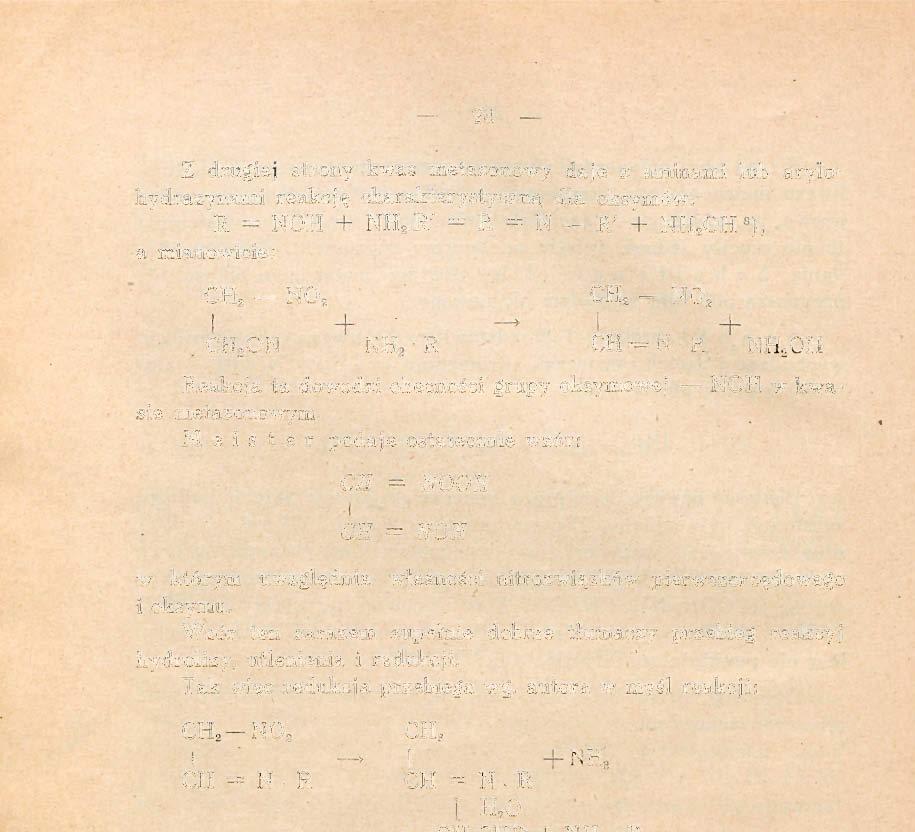 Z drugiej strony kwas metazonowy daje z aminami lub arylo-
hydrazynami reakcję charakterystyczną dla oksymów:
R = NOH + NH₂R′ = R = N — R′ + NH₂OH ⁸),
a mianowicie:
CH₂ — NO₂ CH₂ — NO₂
| + → | +
NH₂ · R CH = N R NH₂OH
Reakcja ta dowodzi obecności grupy oksymowej — NOH w kwa-
sie metazonowym
Meister podaje ostatecznie wzór:
CH = NOOH
|
CH = NOH
w którym uwzględnia własności nitrozwiązków pierwszorzędowego
i oksymu.
Wzór ten zarazem zupełnie dobrze tłumaczy przebieg reakcyj
hydrolizy, utlenienia i redukcji.
Tak więc redukcja przebiega wg. autora w myśl reakcji:
CH₂ — NO₂ CH₂
| → | + NH₂
CH = N . R CH = N . R
| H₂O